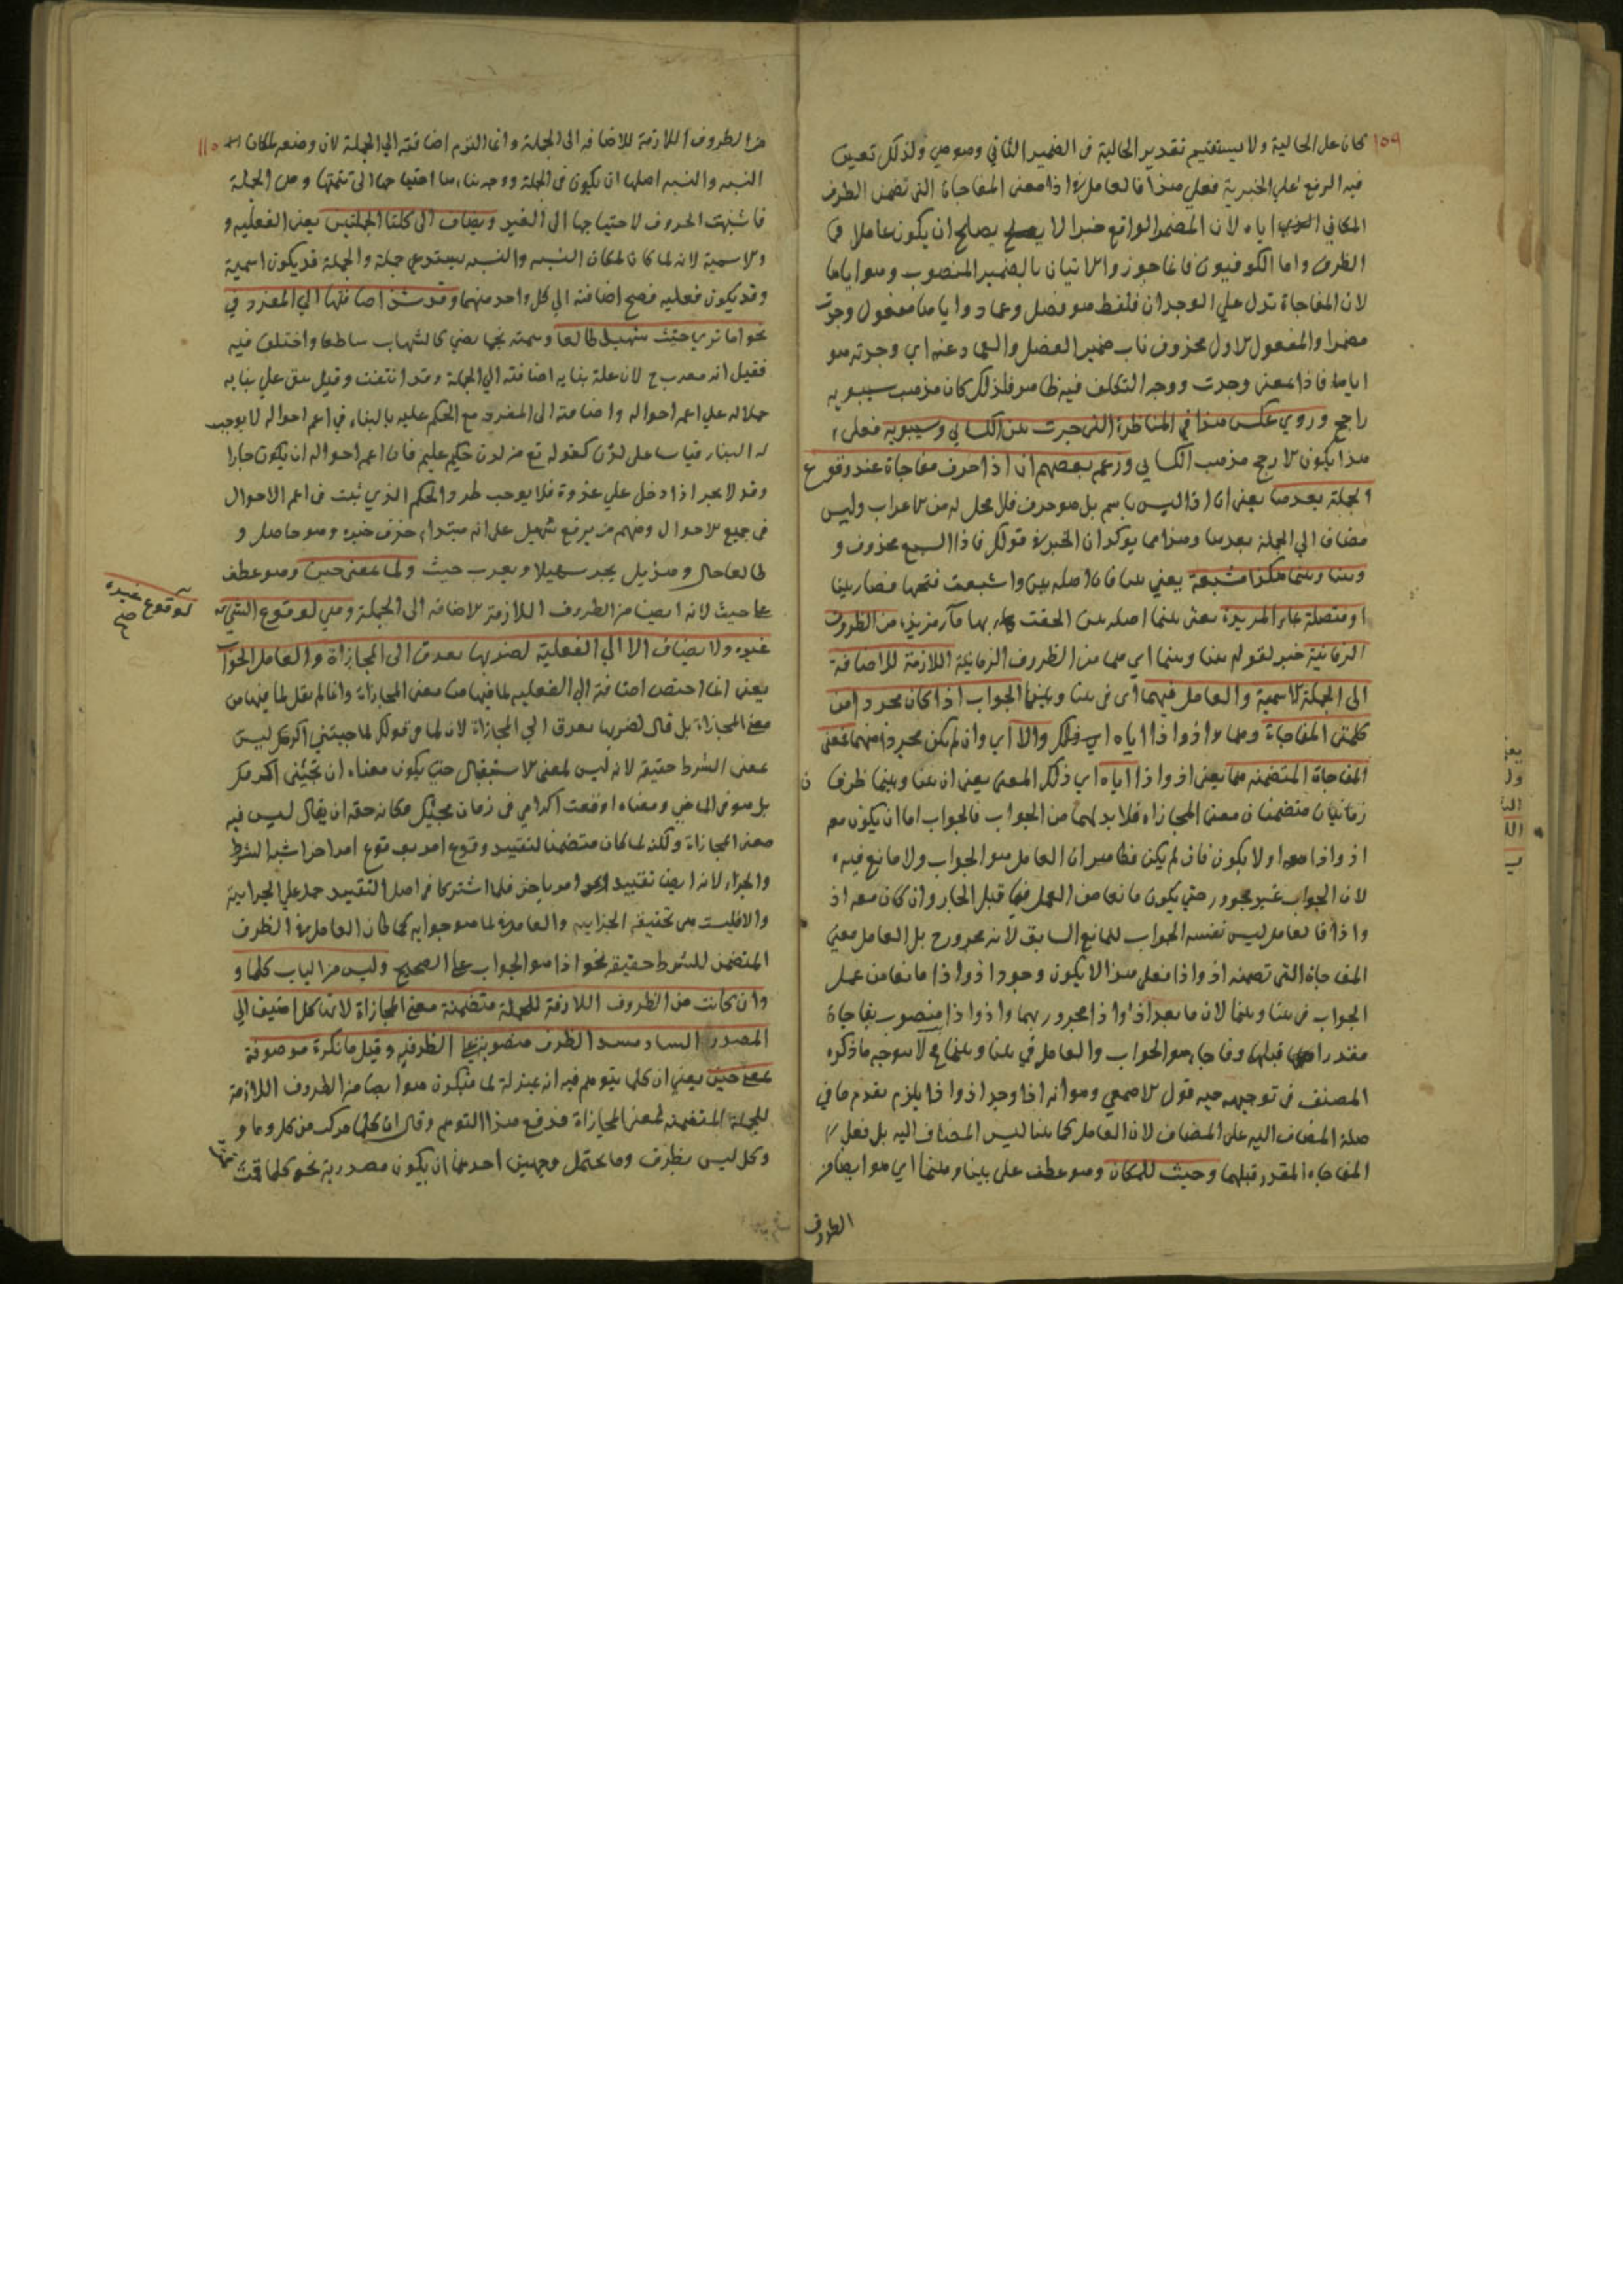 ١٥٩
كان على الحالية ولا يستقيم تقدير الحالية في الضمير الثاني وهو هي ولذلك تعين
فيه الرفع على الخبرية فعلى هذا فالعامل في اذا معنى المفاجاة التي تضمن الظرف
المكاني اياه لان المضمر الواقع خبرا لا يصلح ان يكون عاملا في
الظرف واما الكوفيون فاجوزوا الاتيان بالضمير المنصوب وهو اياها
لان المفاجاة تدل على الوجدان فلفظ هو فصل وعماد واياها مفعول وجدت
مضمرا والمفعول الاول محذوف ناب ضمير الفصل والعماد عنه اي وجدته هو
اياها فاذا بمعنى وجدت ووجه التكلف فيه ظاهر فلذلك كان مذهب سيبويه
راجح وروي عكس هذا في المناظرة التي جرت بين الكسائي وسيبويه فعلى
هذا يكون الارجح مذهب الكسائي وزعم بعضهم ان اذا حرف مفاجاة عند وقوع
الجملة بعدها يعني ان اذا ليس باسم بل هو حرف فلا محل له من الاعراب وليس
مضاف الى الجملة بعدها وهذا مما يوكد ان الخبر في قولك فاذا السبع محذوف و
وبينا وبينما هكذا مشبعة يعني بينا فان اصله بين واشبعت فتحها فصار بينا
او متصلة بما المزيدة يعني بينما اصله بين الحقت بها ما مزيدة من الظروف
الزمانية خبر لقوله بينا وبينما اي هما من الظروف الزمانية اللازمة للاضافة
الى الجملة الاسمية والعامل فيهما اي في بينا وبينما الجواب اذا كان مجردا من
كلمتي المفاجاة وهما اذ واذا اياه اي ذلك والا اي وان لم يكن مجردا منهما فمعنى
المفاجاة المتضمنه هما يعني اذ واذا اياه اي ذلك المعنى يعني ان بينا وبينما ظرفان
زمانيان متضمنان معنى المجازاة فلا بد لهما من الجواب فالجواب اما ان يكون مع
اذ واذا او لا يكون فان لم يكن فظاهر ان العامل هو الجواب ولا مانع فيه
لان الجواب غير مجرور حتى يكون مانعا من العمل فيما قبل الجار وان كان معه اذ
واذا فالعامل ليس نفس الجواب للمانع السابق لانه مجرور ح بل العامل معنى
المفاجاة التي تضمنه اذ واذا فعلى هذا لا يكون وجود اذ واذا مانعا من عمل
الجواب في بينا وبينما لان ما بعد اذ واذا مجرور بهما واذ واذا منصوب بفاجاة
مقدرا قبلها وفاجاة هو الجواب والعامل في بينا وبينما ح لا هو وجه ما ذكره
المصنف في توجيهه قول الاصمعي وهو انه اذا وجد اذ واذا يلزم تقدم ما في
صلة المضاف اليه على المضاف لان العامل في بينا ليس المضاف اليه بل فعل
المفاجاة المقدر قبلهما وحيث للمكان وهو عطف على بينا وبينما اي هو ايضا من
الظروف
١١٠
من الظروف اللازمة للاضافه الى الجملة وانما التزم اضافته الى الجملة لان وضعه لمكان
النسبه والنسبه اصلها ان يكون في الجملة ووجه بناءها احتياجها الى تتمتها وهي الجملة
فاشبهت الحروف لاحتياجها الى الغير ويضاف الى كلتا الجملتين يعني الفعليه و
والاسمية لانه لما كان لمكان النسبه والنسبه يستدعي جملة والجملة قد يكون اسمية
وقد يكون فعليه فصح اضافته الى كل واحد منهما وقد شذ اضافتها الى المفرد في
نحو اما تري حيث سهيل طالعا وتمته نجما يضي كالشهاب ساطعا واختلف فيه
فقيل انه معرب ح لان علة بنايه اضافته الى الجملة وقد انتفت وقيل بقي على بنايه
حملا له على اعم احواله واضافته الى المفرد مع الحكم عليه بالبناء في اعم احواله لا يوجب
له البناء قياسا على لدن كقوله تع من لدن حكيم عليم فان اعم احواله ان يكون جارا
وقد لا يجر اذا دخل على غدوة فلا يوجب طرد الحكم الذي ثبت في اعم الاحوال
في جميع الاحوال ومنهم من يرفع سهيل على انه مبتداء حذف خبره وهو حاصل و
طالعا حال وهذيل يجر سهيلا ويعرب حيث ولما بمعنى حين وهو عطف
على حيث لانه ايضا من الظروف اللازمة للاضافه الى الجملة وهي لوقوع الشي
لوقوع غيره صح
غيره ولا يضاف الا الى الفعلية لضربها بعرق الى المجازاة والعامل الجواب
يعني انما اختص اضافته الى الفعليه لما فيها من معنى المجازاة وانما لم يقل لما فيها من
معنى المجازاة بل قال لضربها بعرق الى المجازاة لان لما في قولك لما جئتني اكرمتك ليس
بمعنى الشرط حقيقة لانه ليس لمعنى الاستقبال حتى يكون معناه ان تجئني اكرمك
بل هو في الماضي ومعناه اوقعت اكرامي في زمان مجيئك فكانه حقه ان يقال ليس فيه
معنى المجازاة ولكنه لما كان متضمنا لتقييد وقوع امر بوقوع امر اخر اشبه الشرط
والجزاء لانه ايضا تقييد امر بامر اخر فلما اشتركا في اصل التقييد حمل على الجزائية
والا فليست هي تحقيقه الجزاييه والعامل في لما هو جوابه كما كان العامل في الظرف
المتضمن للشرط حقيقة نحو اذا هو الجواب على الصحيح وليس من الباب كلما و
وان كانت من الظروف اللازمة للجملة متضمنة معنى المجازاة لانها كل اضيف الى
المصدر الساد مسد الظرف منصوبة على الظرفيه وقيل ما نكرة موصوفة
بمعنى حين يعني ان كلما يتوهم فيه انه بمنزلة لما فيكون هو ايضا من الظروف اللازمة
للجملة المتضمنه لمعنى المجازاة فدفع هذا التوهم وقال ان كلما مركب من كل وما و
وكل ليس بظرف وما يحتمل وجهين احدهما ان يكون مصدرية نحو كلما قمت